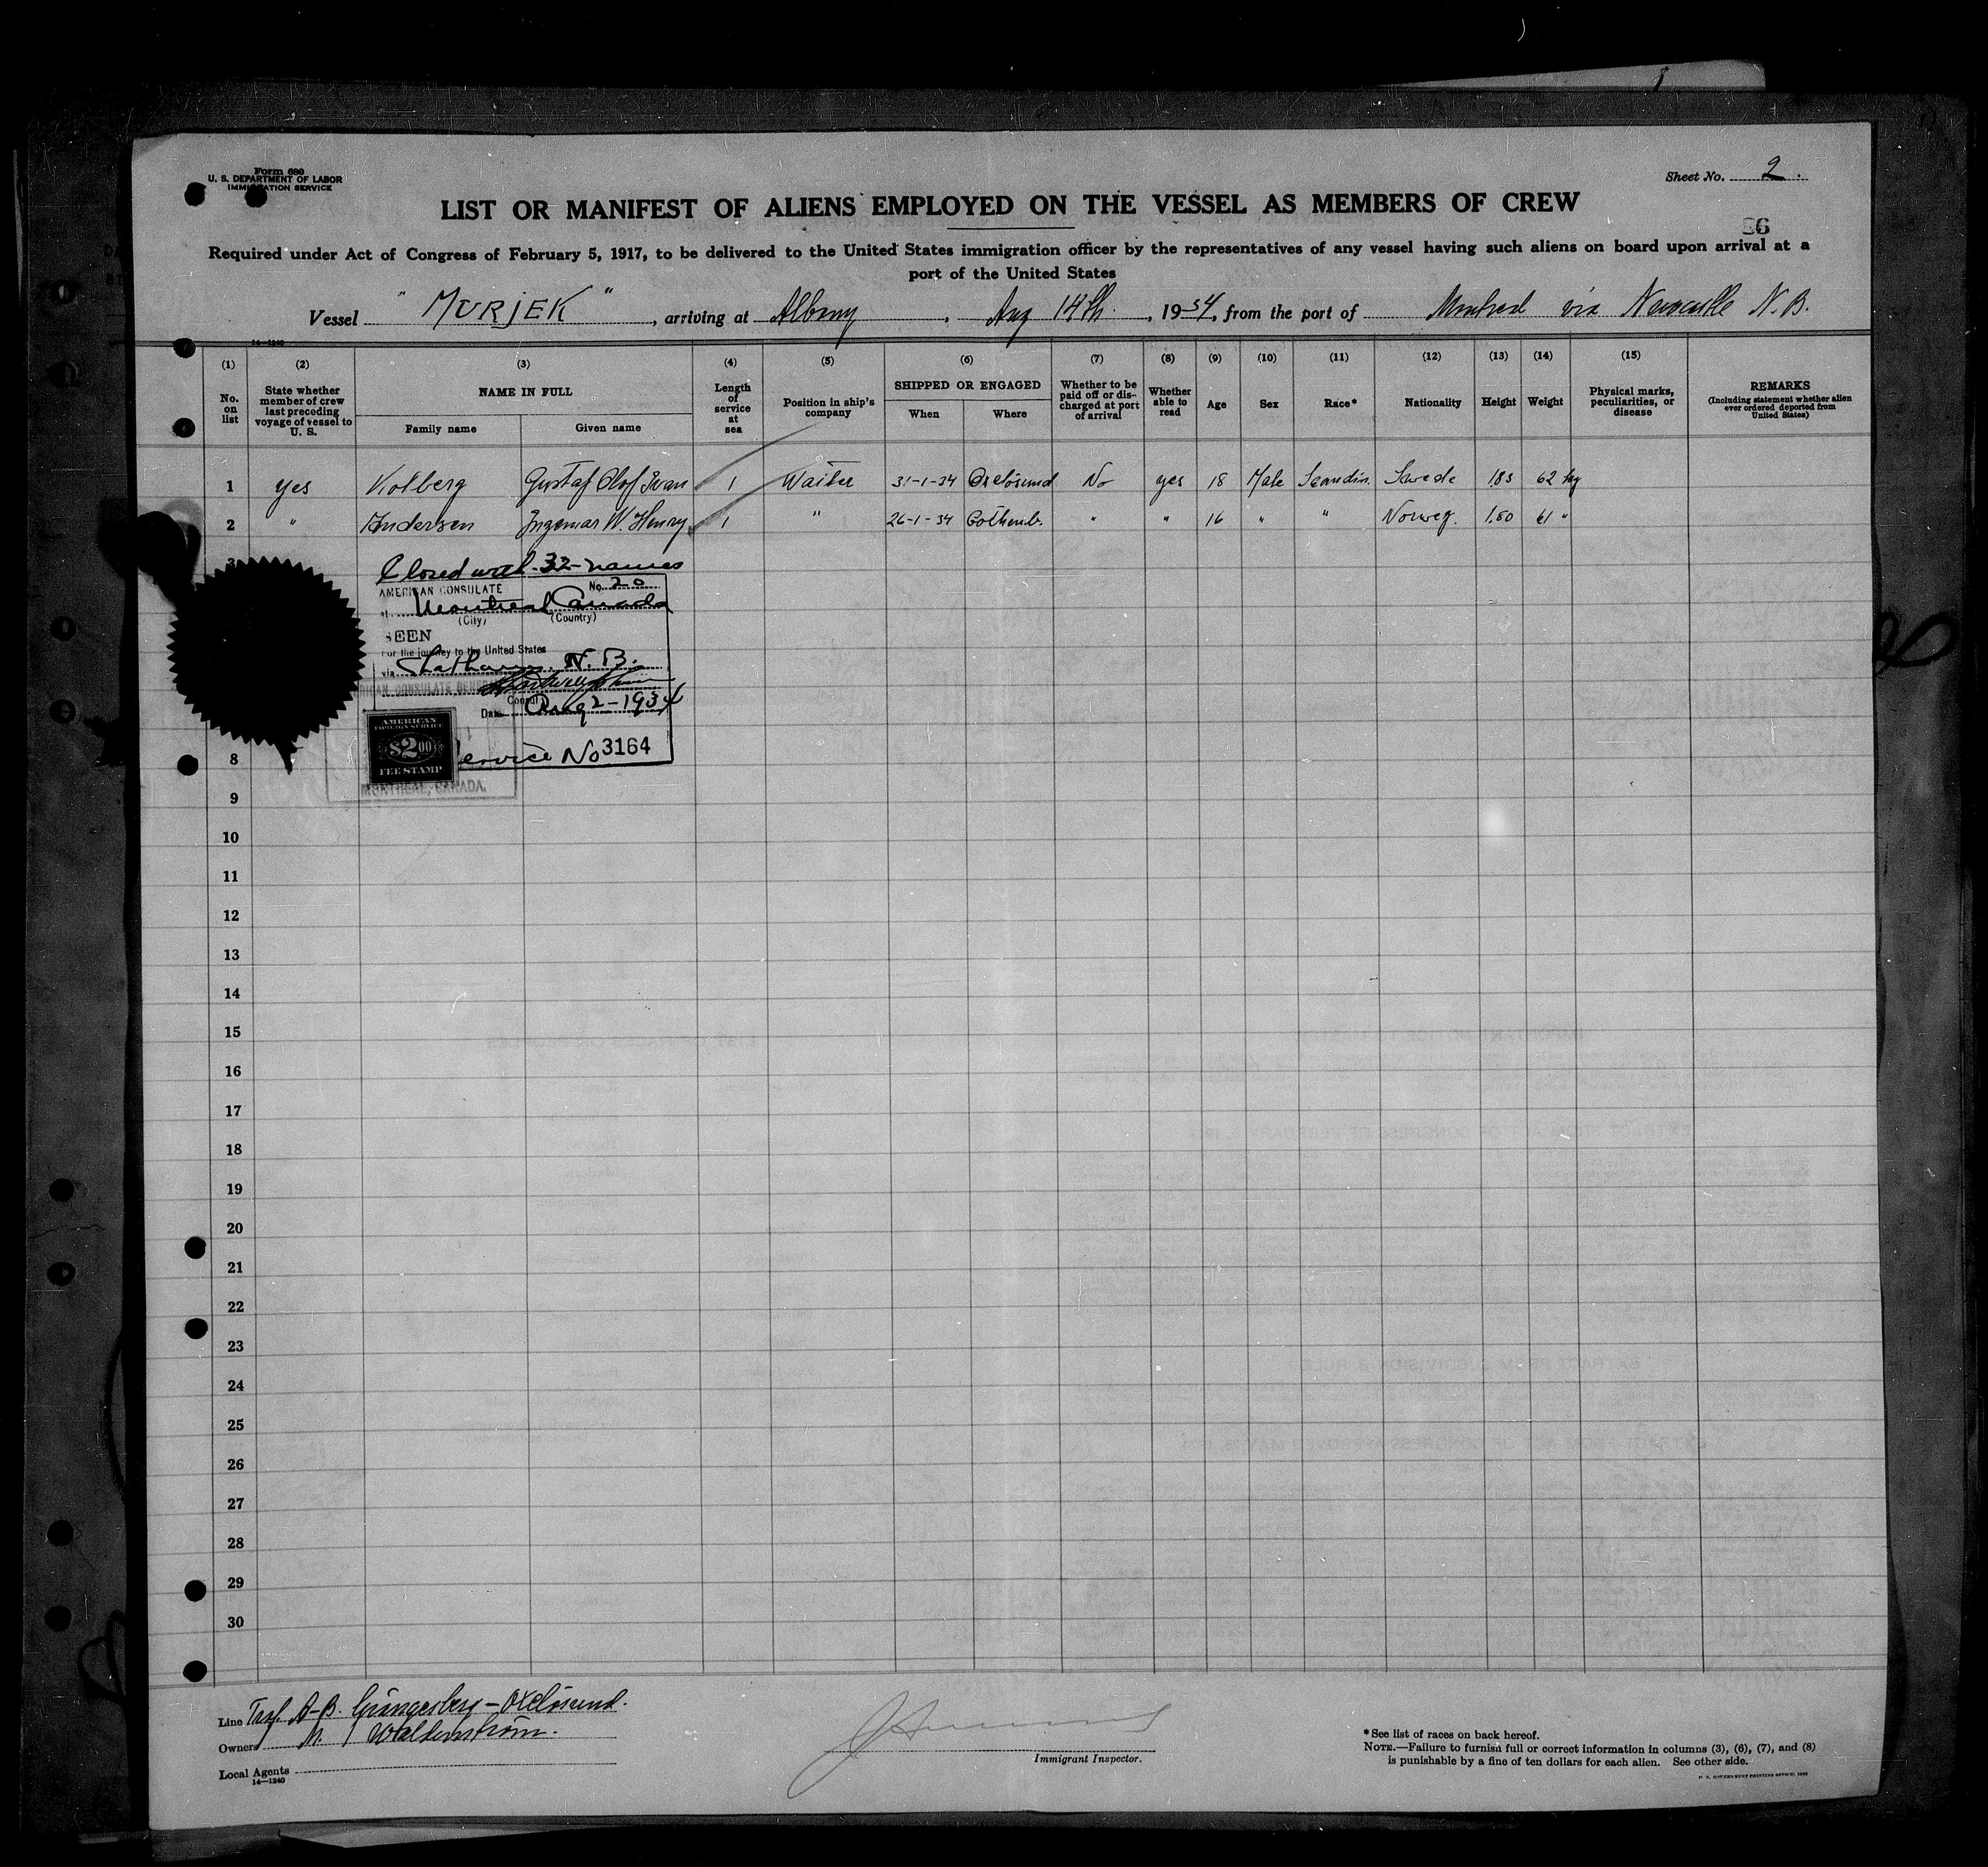 Form 680
U. S. DEPARTMENT OF LABOR
IMMIGRATION SERVICE
Sheet No. 2.
LIST OR MANIFEST OF ALIENS EMPLOYED ON THE VESSEL AS MEMBERS OF CREW
Required under Act of Congress of February 5, 1917, to be delivered to the United States immigration officer by the representatives of any vessel having such aliens on board upon arrival at a
port of the United States
Vessel "MURJEK", arriving at Albany, Aug 14th, 1934, from the port of Montreal via Newcastle N.B.
14—1240
(1) (2) (3) (4) (5) (6) (7) (8) (9) (10) (11) (12) (13) (14) (15)
No. on list
State whether member of crew last preceding voyage of vessel to U. S.
NAME IN FULL
Family name
Given name
Length of service at sea
Position in ship's company
SHIPPED OR ENGAGED
When
Where
Whether to be paid off or discharged at port of arrival
Whether able to read
Age
Sex
Race*
Nationality
Height
Weight
Physical marks, peculiarities, or disease
REMARKS
(Including statement whether alien ever ordered deported from United States)
1 yes Kolberg Gustaf Olof Ivan 1 Waiter 31-1-34 Oxelösund No yes 18 Male Scandin. Swede 1.83 62 kg
2 " Andersen Ingemar W. Henry 1 " 26-1-34 Gothenb. " " 16 " " Norweg. 1.80 61 "
3
Closed with 32 names
AMERICAN CONSULATE No. 20
at Montreal Canada
(City) (Country)
SEEN
For the journey to the United States
via Chatham, N.B.
Consul
Date Aug 2-1934
AMERICAN
FOREIGN SERVICE
$2.00
FEE STAMP
Service No 3164
MONTREAL, CANADA.
8
9
10
11
12
13
14
15
16
17
18
19
20
21
22
23
24
25
26
27
28
29
30
Line Traf. A-B. Grängesberg-Oxelösund.
Owners M. Waldenström.
Local Agents
14—1240
Immigrant Inspector.
*See list of races on back hereof.
NOTE.—Failure to furnish full or correct information in columns (3), (6), (7), and (8)
is punishable by a fine of ten dollars for each alien. See other side.